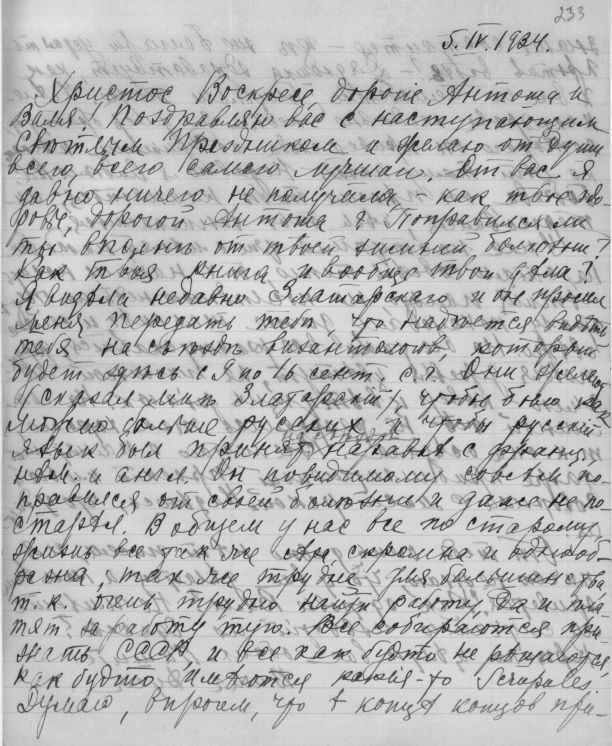 233
5.IV.1934.
Христос Воскресе дорогіе Антоша и
Валя! Поздравляю вас с наступающим
Светлым Праздником и желаю от души
всего, всего самаго лучшаго. От вас я
давно ничего не получала – как твое здо-
ровье, дорогой Антоша? Поправился ли
ты вполнѣ от твоей зимней болѣзни?
Как твоя книга и вообще твои дѣла?
Я видѣла недавно Златарскаго и он просил
меня передать тебѣ, что надѣется видѣть
тебя на съѣздѣ византологов, который
будет здѣсь с 9 по 16 сент. с.г. Они желают,
сказал мнѣ Златарскій, чтобы было как
можно больше русских и чтобы русскій
язык был принят наравнѣ с франц.,
нѣм. и англ. Он повидимому совсѣм по-
правился от своей болѣзни и даже не по-
старѣл. В общем у нас все по старому,
жизнь все так же скромна и однооб-
разна, так же трудна для большинства
т.к. очень трудно найти работу, да и пла-
тят за работу туго. Все собираются при-
знать СССР, и все как будто не рѣшаются,
как будто имѣются какія-то Scrupules.
Думаю, впрочем, что в концѣ концов при-